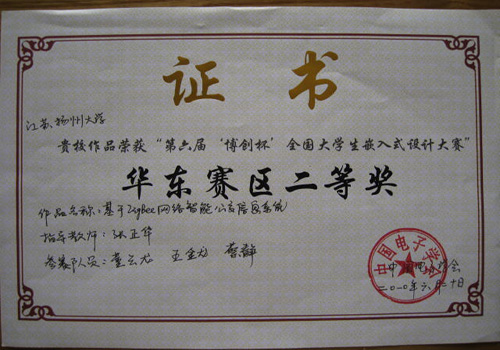 证书
江苏 扬州大学
贵校作品荣获“第六届‘博创杯’全国大学生嵌入式设计大赛”
华东赛区二等奖
作品名称：基于ZigBee网络智能公交信息系统
指导教师：张正华
参赛队员：董云龙 王金龙
中国电子学会
中国电子学会
二〇一〇年六月二十日